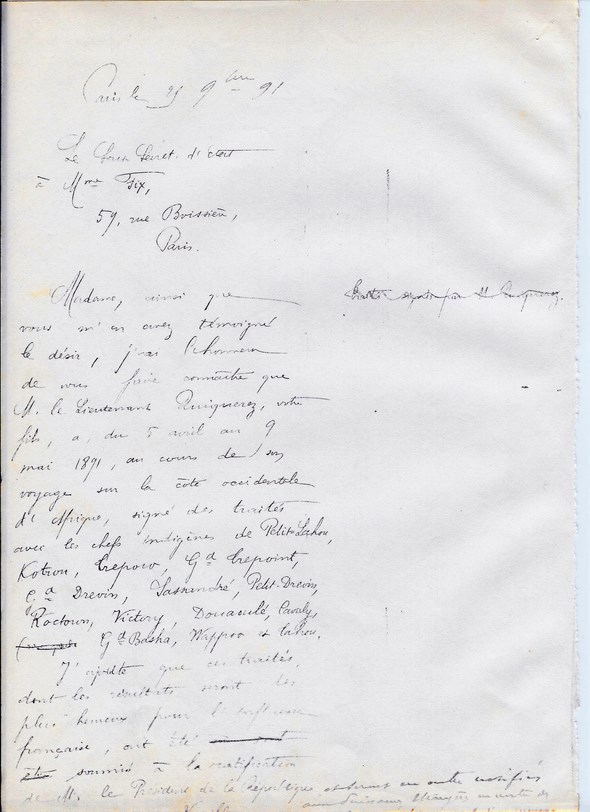 Paris le 25 9bre 91
Le Sous Secret. d'état
à Mme Fix,
59, rue Boissière,
Paris.
Madame, ainsi que
vous m'en avez témoigné
le désir, j'ai l'honneur
de vous faire connaître que
M. le Lieutenant Quiquerez, votre
fils, a, du 5 avril au 9
mai 1891, au cours de son
voyage sur la côte occidentale
d'Afrique, signé des traités
avec les chefs indigènes de Petit-Lahou,
Kotrou, Trepow, Gd Trepoint,
Gd Drewin, Sassandré, Petit-Drewin,
Roctown, Victory, Douaoulé, Cavaly,
Gd Basha, Wappoo et Lahou.
J'ajoute que ces traités,
dont les résultats seront des
plus heureux pour l'influence
française, ont été
soumis à la ratification
de M. le Président de la République et seront en outre notifiés
aux Puissances